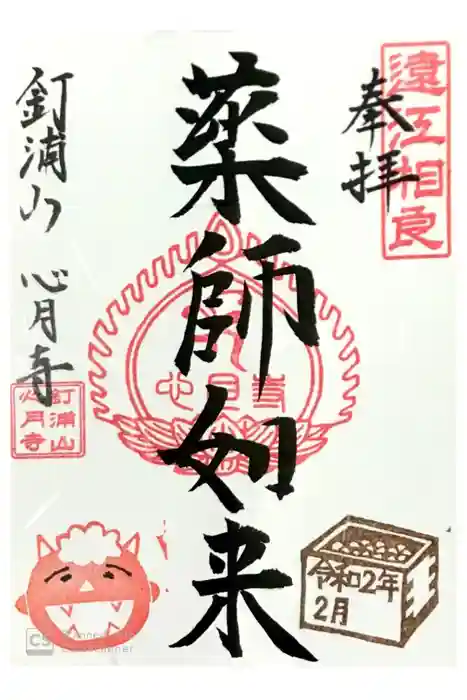 遠江相良
奉拝
薬師如来
心月寺
釘浦山 心月寺
釘浦山
心月寺
令和2年
2月
CS